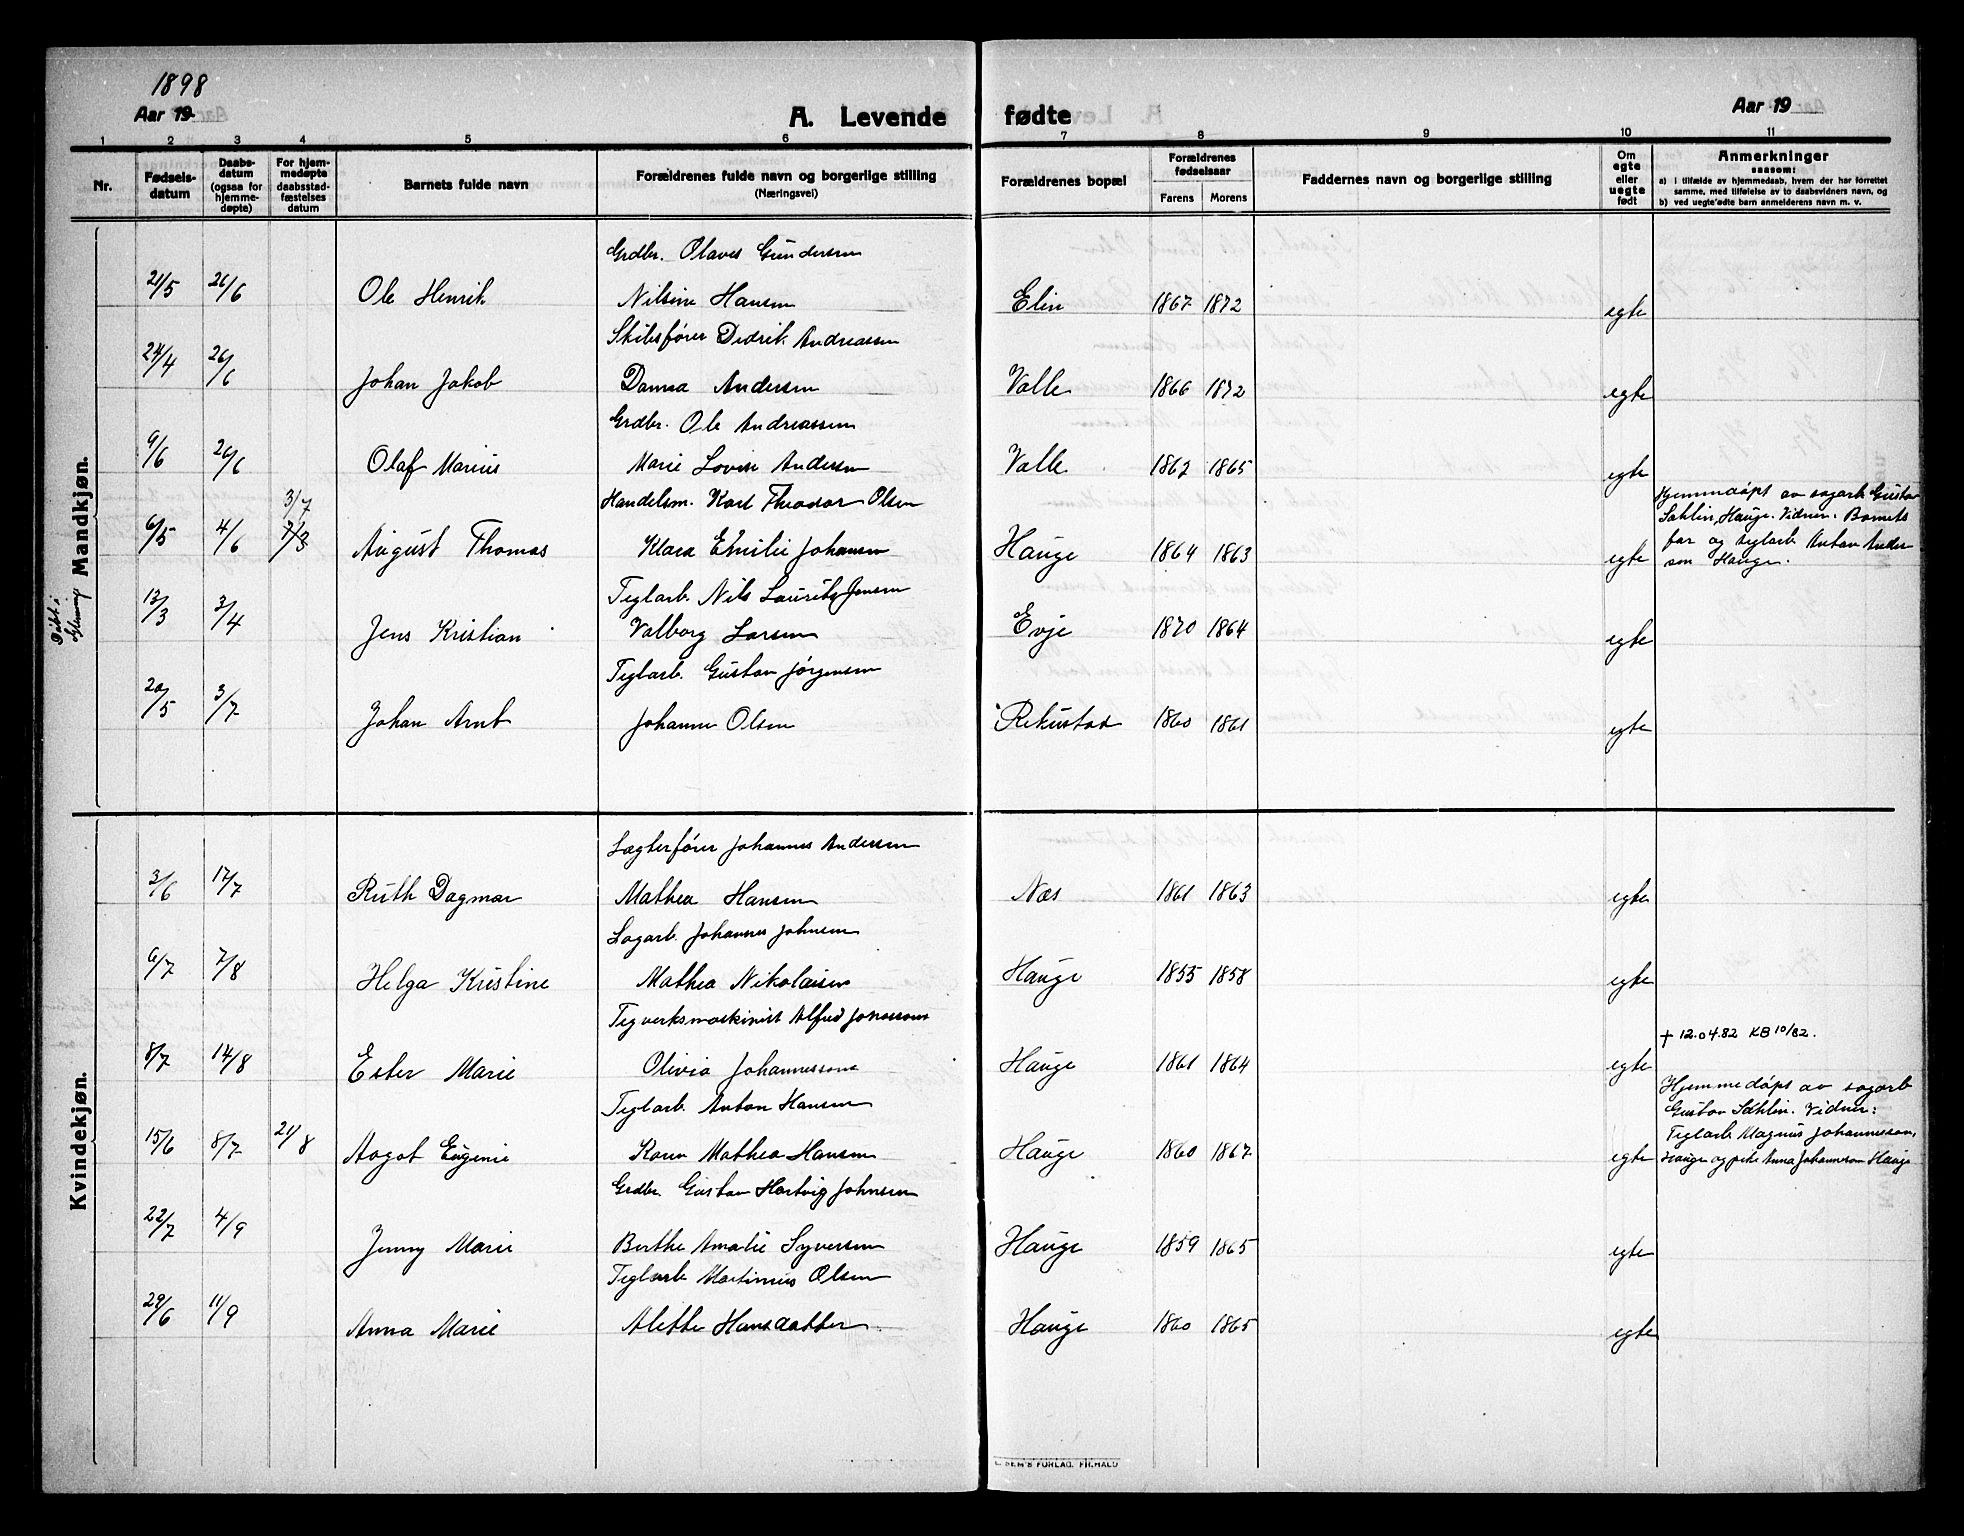 1898
Aar 19
A. Levende fødte
Aar 19
1 2 3 4 5 6 7 8 9 10 11
Nr.
Fødselsdatum
Daabsdatum (ogsaa for hjemmedøpte)
For hjemmedøpte daabsstadfæstelses datum
Barnets fulde navn
Forældrenes fulde navn og borgerlige stilling (Næringsvei)
Forældrenes bopæl
Forældrenes fødselsaar
Farens Morens
Faddernes navn og borgerlige stilling
Om egte eller uegte født
Anmerkninger
saasom:
a) i tilfælde av hjemmedaab, hvem der har forrettet samme, med tilføielse av to daabsvidners navn, og
b) ved uegte fødte barn anmelderens navn m. v.
Mandkjøn.
Grdbr. Olaves Gundersen
21/5 26/6 Ole Henrik Nilsine Hansen Elin 1867 1872 egte
Skibsfører Didrik Andreassen
24/4 26/6 Johan Jakob Danna Andersen Valle 1866 1872 egte
Grdbr. Ole Andreassen
9/6 26/6 Olaf Marius Marie Lovise Andersen Valle 1862 1865 egte
3/7 Handelsm. Karl Theodor Olsen
6/5 4/6 7/3 August Thomas Klara Emilie Johansen Hauge 1864 1863 egte
Hjemmedøpt av sagarb. Gustav
Sahlin, Hauge. Vidner: Barnets
far og teglarb. Anton Ander-
sen Hauge.
Døbt i
Teglarb. Nils Lauritz Jensen
13/3 3/4 Jens Kristian Valborg Larsen Evje 1870 1864 egte
Teglarb. Gustav Jörgensen
20/5 3/7 Johan Arnt Johanne Olsen Rekustad 1860 1861 egte
Kvindekjøn.
Lægterfører Johannes Andersen
3/6 17/7 Ruth Dagmar Mathea Hansen Næs 1861 1863 egte
Sagarb. Johannes Johnsen
6/7 7/8 Helga Kristine Mathea Nikolaisen Hauge 1855 1858 egte
Tegverksmaskinist Alfred Jonassons
8/7 14/8 Ester Marie Olivia Johannessons Hauge 1861 1864 egte
† 12.04.82 KB 10/82.
Teglarb. Anton Hansen
15/6 8/7 21/8 Aagot Eugenie Karen Mathea Hansen Hauge 1860 1867 egte
Hjemmedøpt av sagarb
Gustav Sahlin. Vidner:
Teglarb Magnus Johannesson,
Hauge og pike Anna Johanneson Hauge
Grdbr. Gustav Hartvig Johnsen
22/7 4/9 Jenny Marie Berthe Amalie Syversen Hauge 1859 1865 egte
Teglarb. Martinius Olsen
29/6 11/9 Anna Marie Alette Hansdatter Hauge 1860 1865 egte
SEM'S FORLAG, FR.HALD